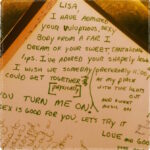 LISA,
I HAVE ADMIRED
YOUR VOLUPTUOUS, SEXY
BODY FROM A FAR. I
DREAM OF YOUR SWEET,
LIPS. I'VE ADORED YOUR SHAPELY
I WISH WE SOMEDAY (PREFERABLY
COULD GET TOGETHER AT MY PLACE
(PHYSICALLY) WITH THE LIGHTS
OUT
AND SWEET
MUSIC ON
YOU TURN ME ON!
SEX IS GOOD FOR YOU, LET'S TRY IT
LOVE AND